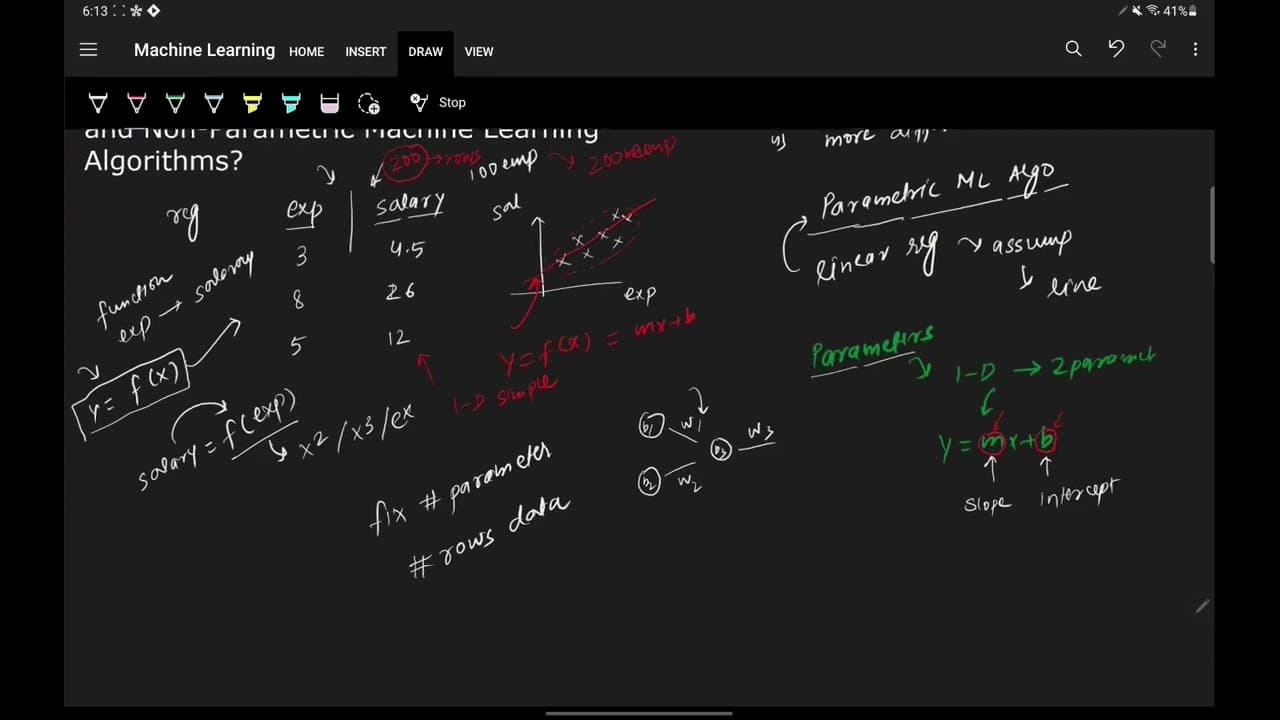 6:13
41%
Machine Learning HOME INSERT DRAW VIEW
Stop
and Non-Parametric Machine Learning
Algorithms?
200 → rows
100 emp
reg
exp salary
3 4.5
8 26
5 12
function
exp → salary
y = f(x)
salary = f(exp)
x2 / x3 / ex
sal
exp
Y = f(x) = mx+b
1-D simple
fix # parameter
# rows data
b1 w1
b3 w3
b2 w2
more
Parametric ML Algo
linear reg assump
line
Parameters
1-D → 2 paramet
Y = mx+b
slope intercept